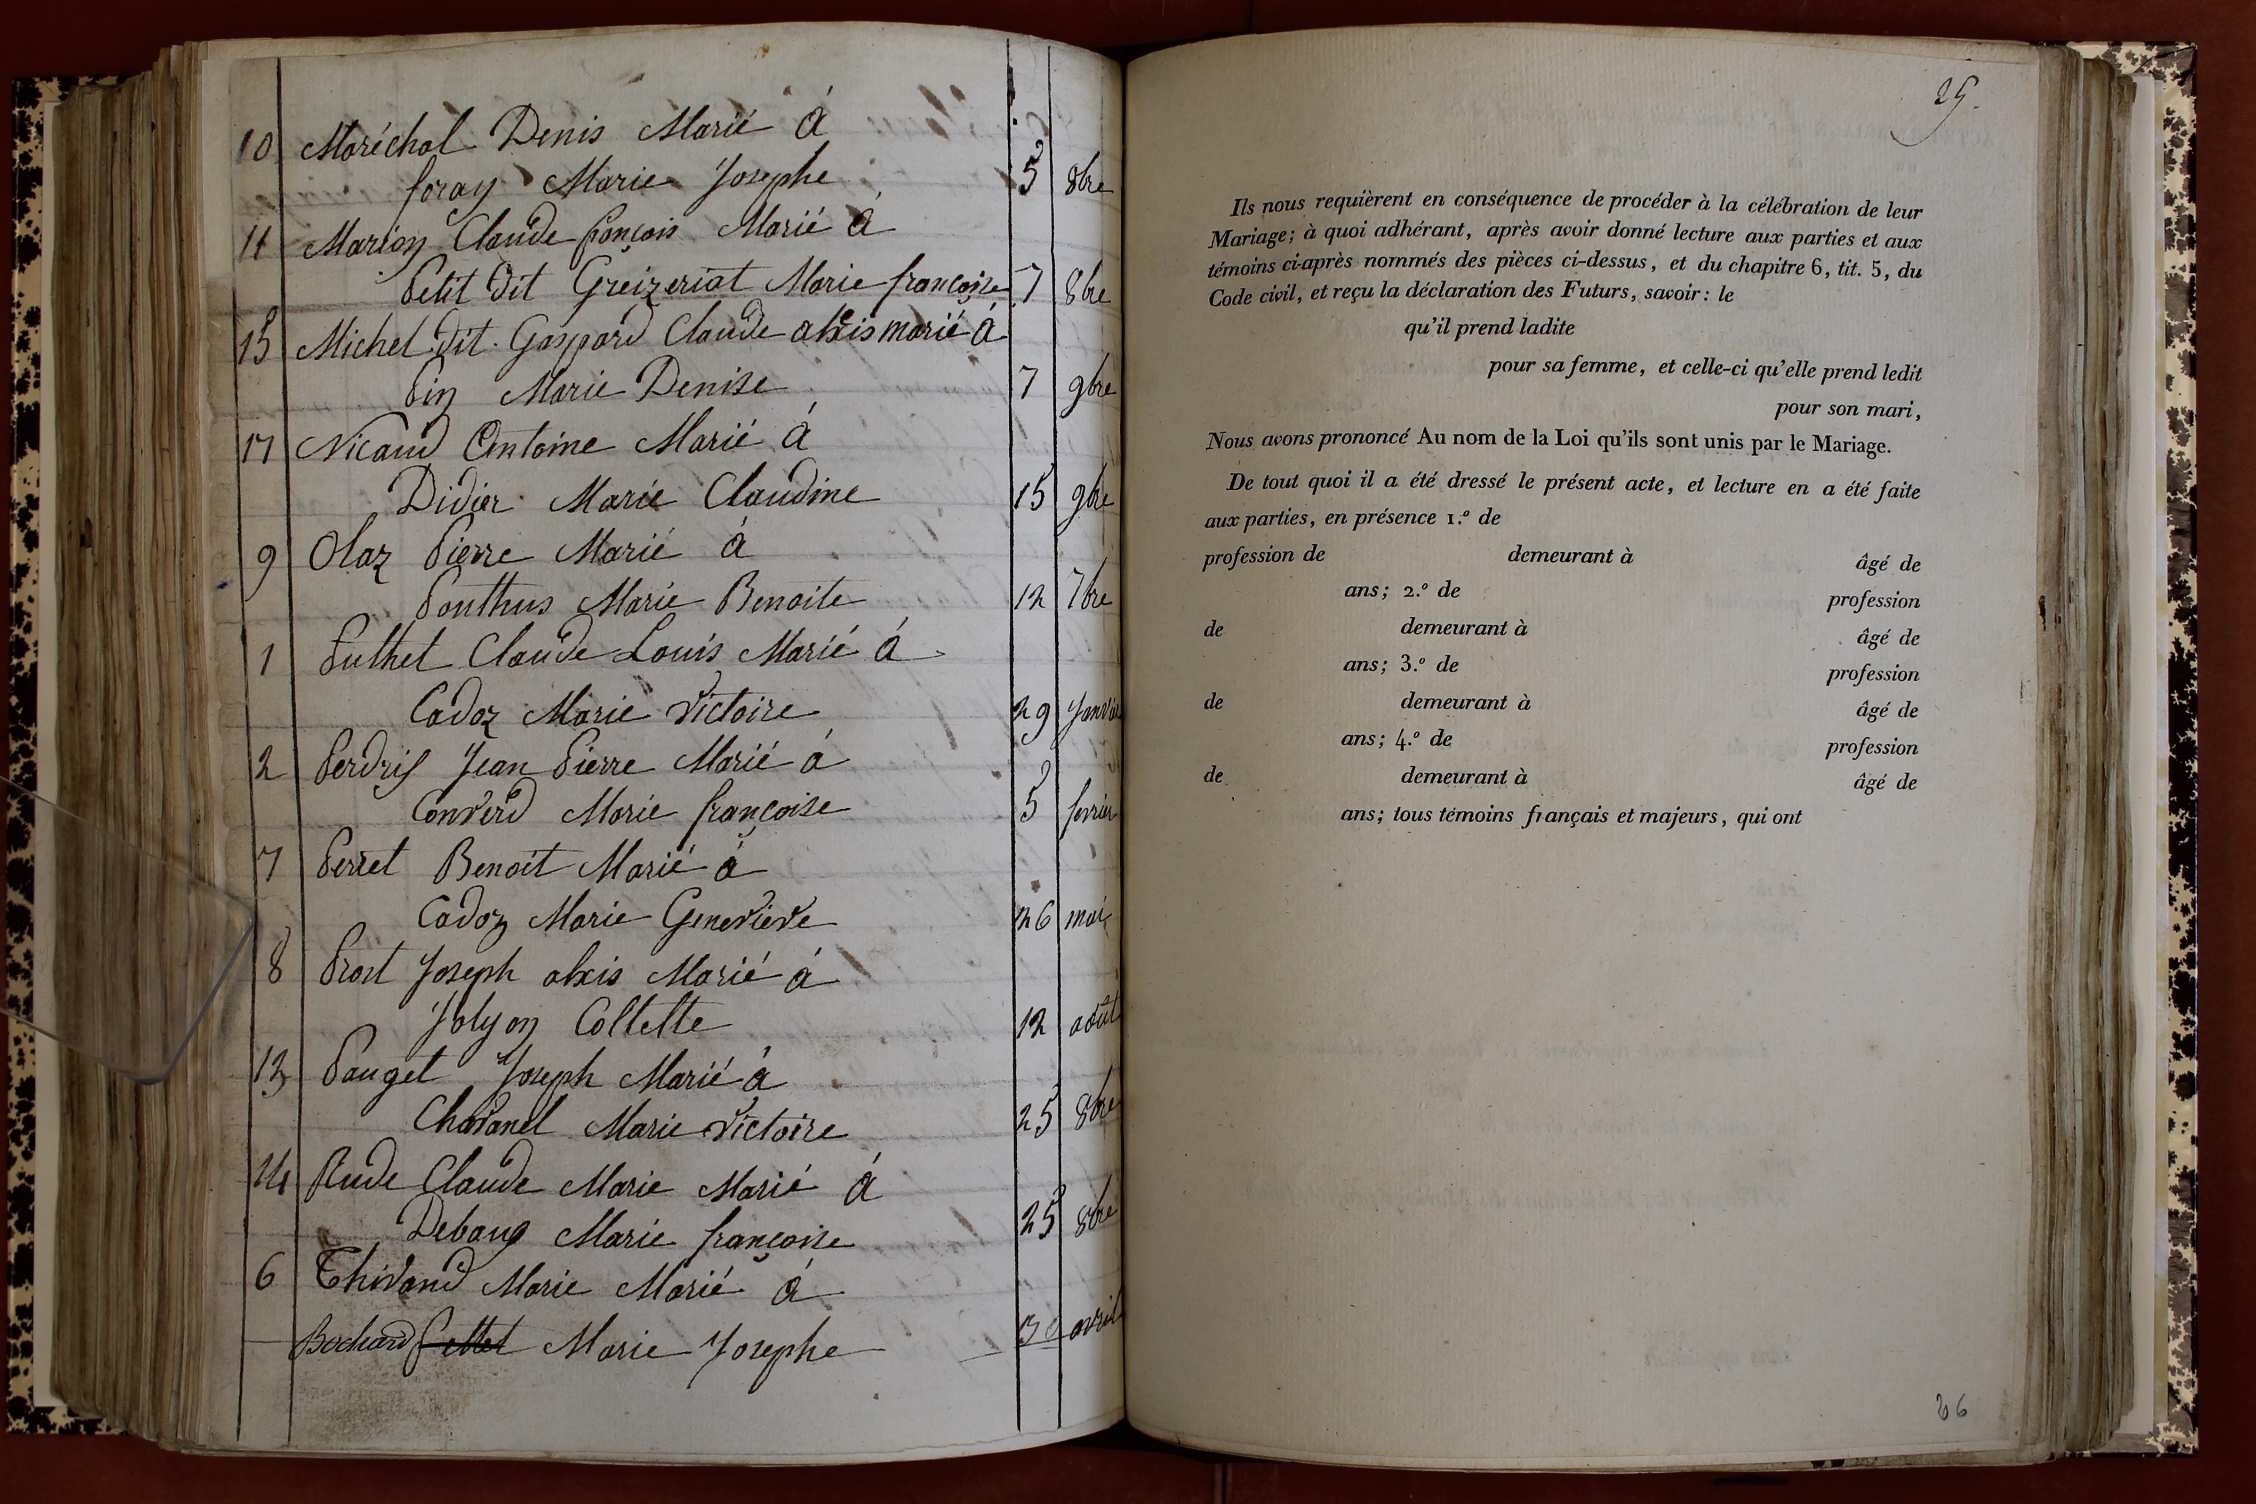 10 Maréchal Denis Marié à
foray Marie Josephe 5 8bre
11 Marion Claude françois Marié à
Petit dit Greizeriat Marie françoise 7 8bre
15 Michel dit Gaspard Claude alexis marié à
Pin Marie Denise 7 9bre
17 Nicaud Antoine Marié à
Didier Marie Claudine 15 9bre
9 Olaz Pierre Marié à
Ponthus Marie Benoite 12 7bre
1 Puthet Claude Louis Marié à
Cadoz Marie Victoire 29 Janvier
2 Perdrix Jean Pierre Marié à
Converd Marie françoise 5 fevrier
7 Perret Benoit Marié à
Cadoz Marie Geneviève 26 mai
8 Prost Joseph alexis Marié à
Jolyon Collette 12 août
13 Pauget Joseph Marié à
Chavanel Marie Victoire 25 8bre
14 Rude Claude Marie Marié à
Marie françoise 25 8bre
6 Thivand Marie Marié à
Bochard Marie Josephe 30 avril
29.
Ils nous requièrent en conséquence de procéder à la célébration de leur
Mariage; à quoi adhérant, après avoir donné lecture aux parties et aux
témoins ci-après nommés des pièces ci-dessus, et du chapitre 6, tit. 5, du
Code civil, et reçu la déclaration des Futurs, savoir: le
qu'il prend ladite
pour sa femme, et celle-ci qu'elle prend ledit
pour son mari,
Nous avons prononcé Au nom de la Loi qu'ils sont unis par le Mariage.
De tout quoi il a été dressé le présent acte, et lecture en a été faite
aux parties, en présence 1.º de
profession de demeurant à âgé de
ans; 2.º de profession
de demeurant à âgé de
ans; 3.º de profession
de demeurant à âgé de
ans; 4.º de profession
de demeurant à âgé de
ans; tous témoins français et majeurs, qui ont
26